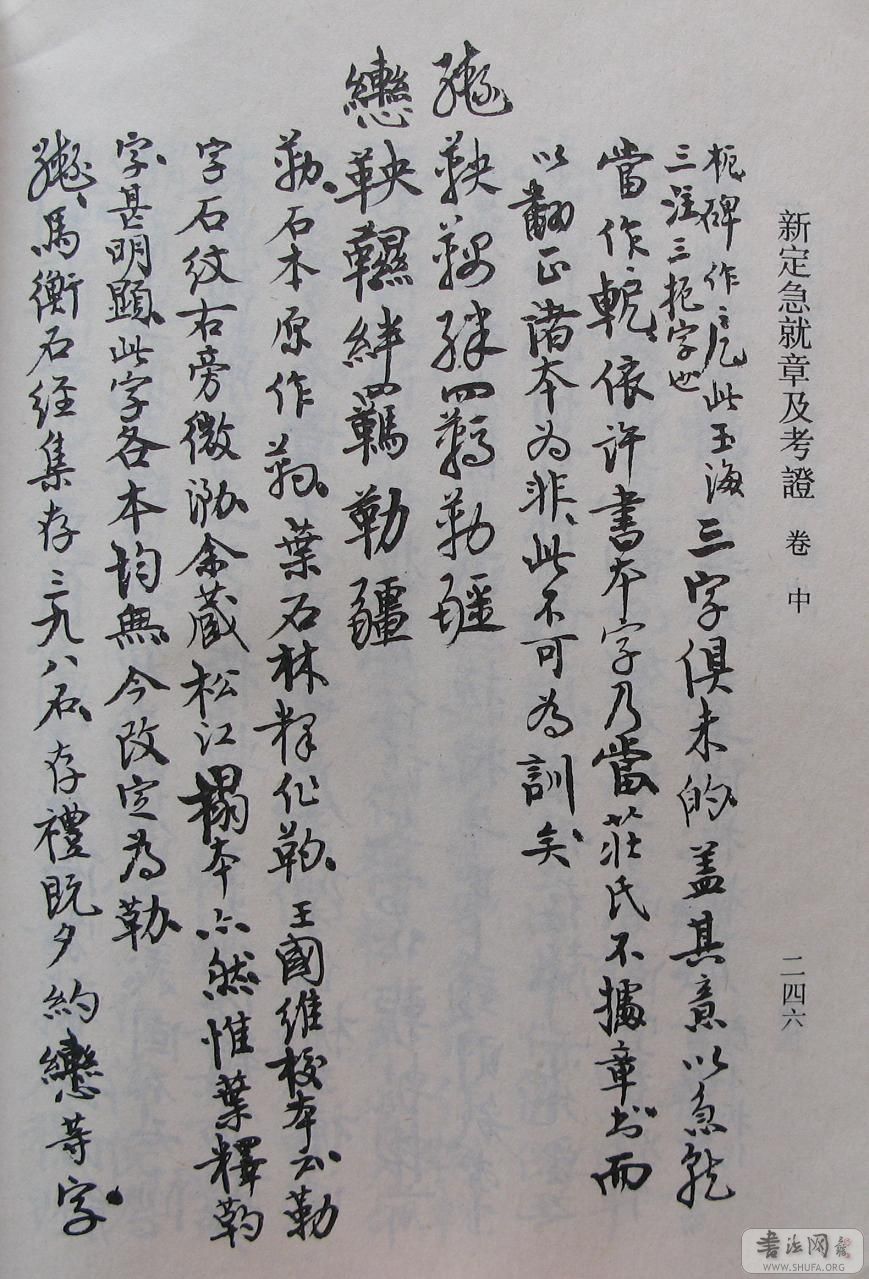 新定急就章及考證 卷中 二四六
柅碑作:卮此玉海
三注三柅字也
三字俱未的蓋其意以急就
當作軛依許書本字乃當莊氏不據章書而
以翻正諸本為非此不可為訓矣
鞅 絆四羈勒疆
轡鞅韅絆四羈勒韁
勒石本原作 葉石林釋作勒王國維校本云勒
字石紋右旁微泐余藏松江榻本亦然惟葉釋
字甚明顯此字各本均無今改定為勒
馬衡石經集存三九八石存禮既夕約轡等字
書法网
WWW.SHUFA.ORG